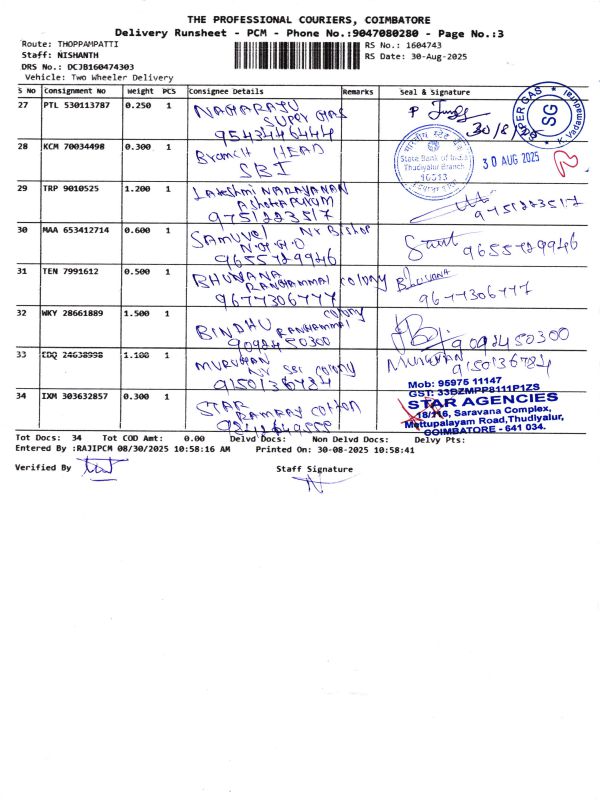 THE PROFESSIONAL COURIERS, COIMBATORE
Delivery Runsheet - PCM - Phone No.:9047080280 - Page No.:3
Route: THOPPAMPATTI
RS No.: 1604743
Staff: NISHANTH
RS Date: 30-Aug-2025
DRS No.: DCJB160474303
Vehicle: Two Wheeler Delivery
S No Consignment No Weight PCS Consignee Details Remarks Seal & Signature
27 PTL 530113787 0.250 1 NAGARAJU
SUPER GAS
9543446444
P
30/8/
SUPER GAS
SG
K. Vadamadurai
28 KCM 70034498 0.300 1 Branch HEAD
SBI
भारतीय स्टेट बैंक
State Bank of India
Thudiyalur Branch
16313
30 AUG 2025
29 TRP 9010525 1.200 1 Lakeshmi NARAYANAN
Ashokapuram
9751223517
9751223517
30 MAA 653412714 0.600 1 SAMUVEL Nr Bishop
N.G.G.O
9655729946
9655729946
31 TEN 7991612 0.500 1 BHUVANA
RANGHAMMAL colony
9677306777
Bhuvana
9677306777
32 WKY 28661889 1.500 1 BINDHU RANGHAMMAL
colony
9092450300
9092450300
33 EDQ 24638998 1.108 1 MURUGAN
Nr SSI colony
9150136784
Murugan
9150136784
34 IXM 303632857 0.300 1 STAR
RAMRAJ Cotton
Mob: 95975 11147
GST: 33BZMPP8111P1ZS
STAR AGENCIES
18/116, Saravana Complex,
Mettupalayam Road, Thudiyalur,
COIMBATORE - 641 034.
Tot Docs: 34 Tot COD Amt: 0.00 Delvd Docs: Non Delvd Docs: Delvy Pts:
Entered By :RAJIPCM 08/30/2025 10:58:16 AM Printed On: 30-08-2025 10:58:41
Verified By
Staff Signature